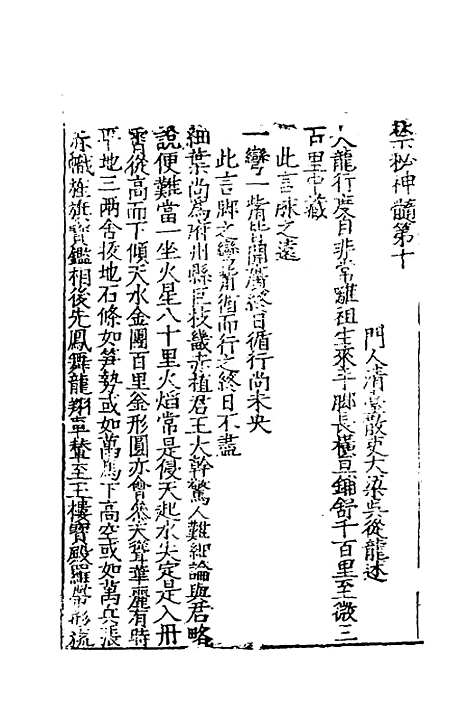 禁秘神髓第十
門人清臺散吏大梁吳從龍述
大龍行度自非常離祖生來手脚長橫亘鋪舒千百里至微三
百里中藏
此言脉之遠
一彎一㫺皆開廣終日循行尚未央
此言脚之灣循而行之終日不盡
細葉尚為府州縣巨枝幾赤植君王大幹驚人難細論與君略
說便難當一坐火星八十里火焰常是侵天起水失定是入冊
霄從高而下傾天水金團百里金形圓亦會參天聳華麗有時
平地三兩舍抜地石條如笋勢或如萬馬下高空或如萬兵張
赤幟雄旌寶鑑相後先鳳舞龍翔車輦至玉樓寶殿羅帶形㫋